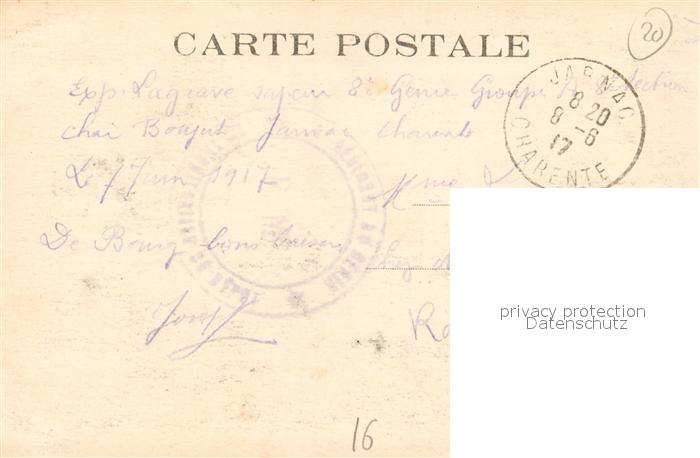 20
CARTE POSTALE
JARNAC
8 20
8 -6
17
CHARENTE
Exp. Lagrave sapeur 8e Génie Groupe A section
chai Boujut Jarnac Charente
Le 7 Juin 1917
Mme
De Bourg bons baisers
chez
Joseph
16
privacy protection
Datenschutz